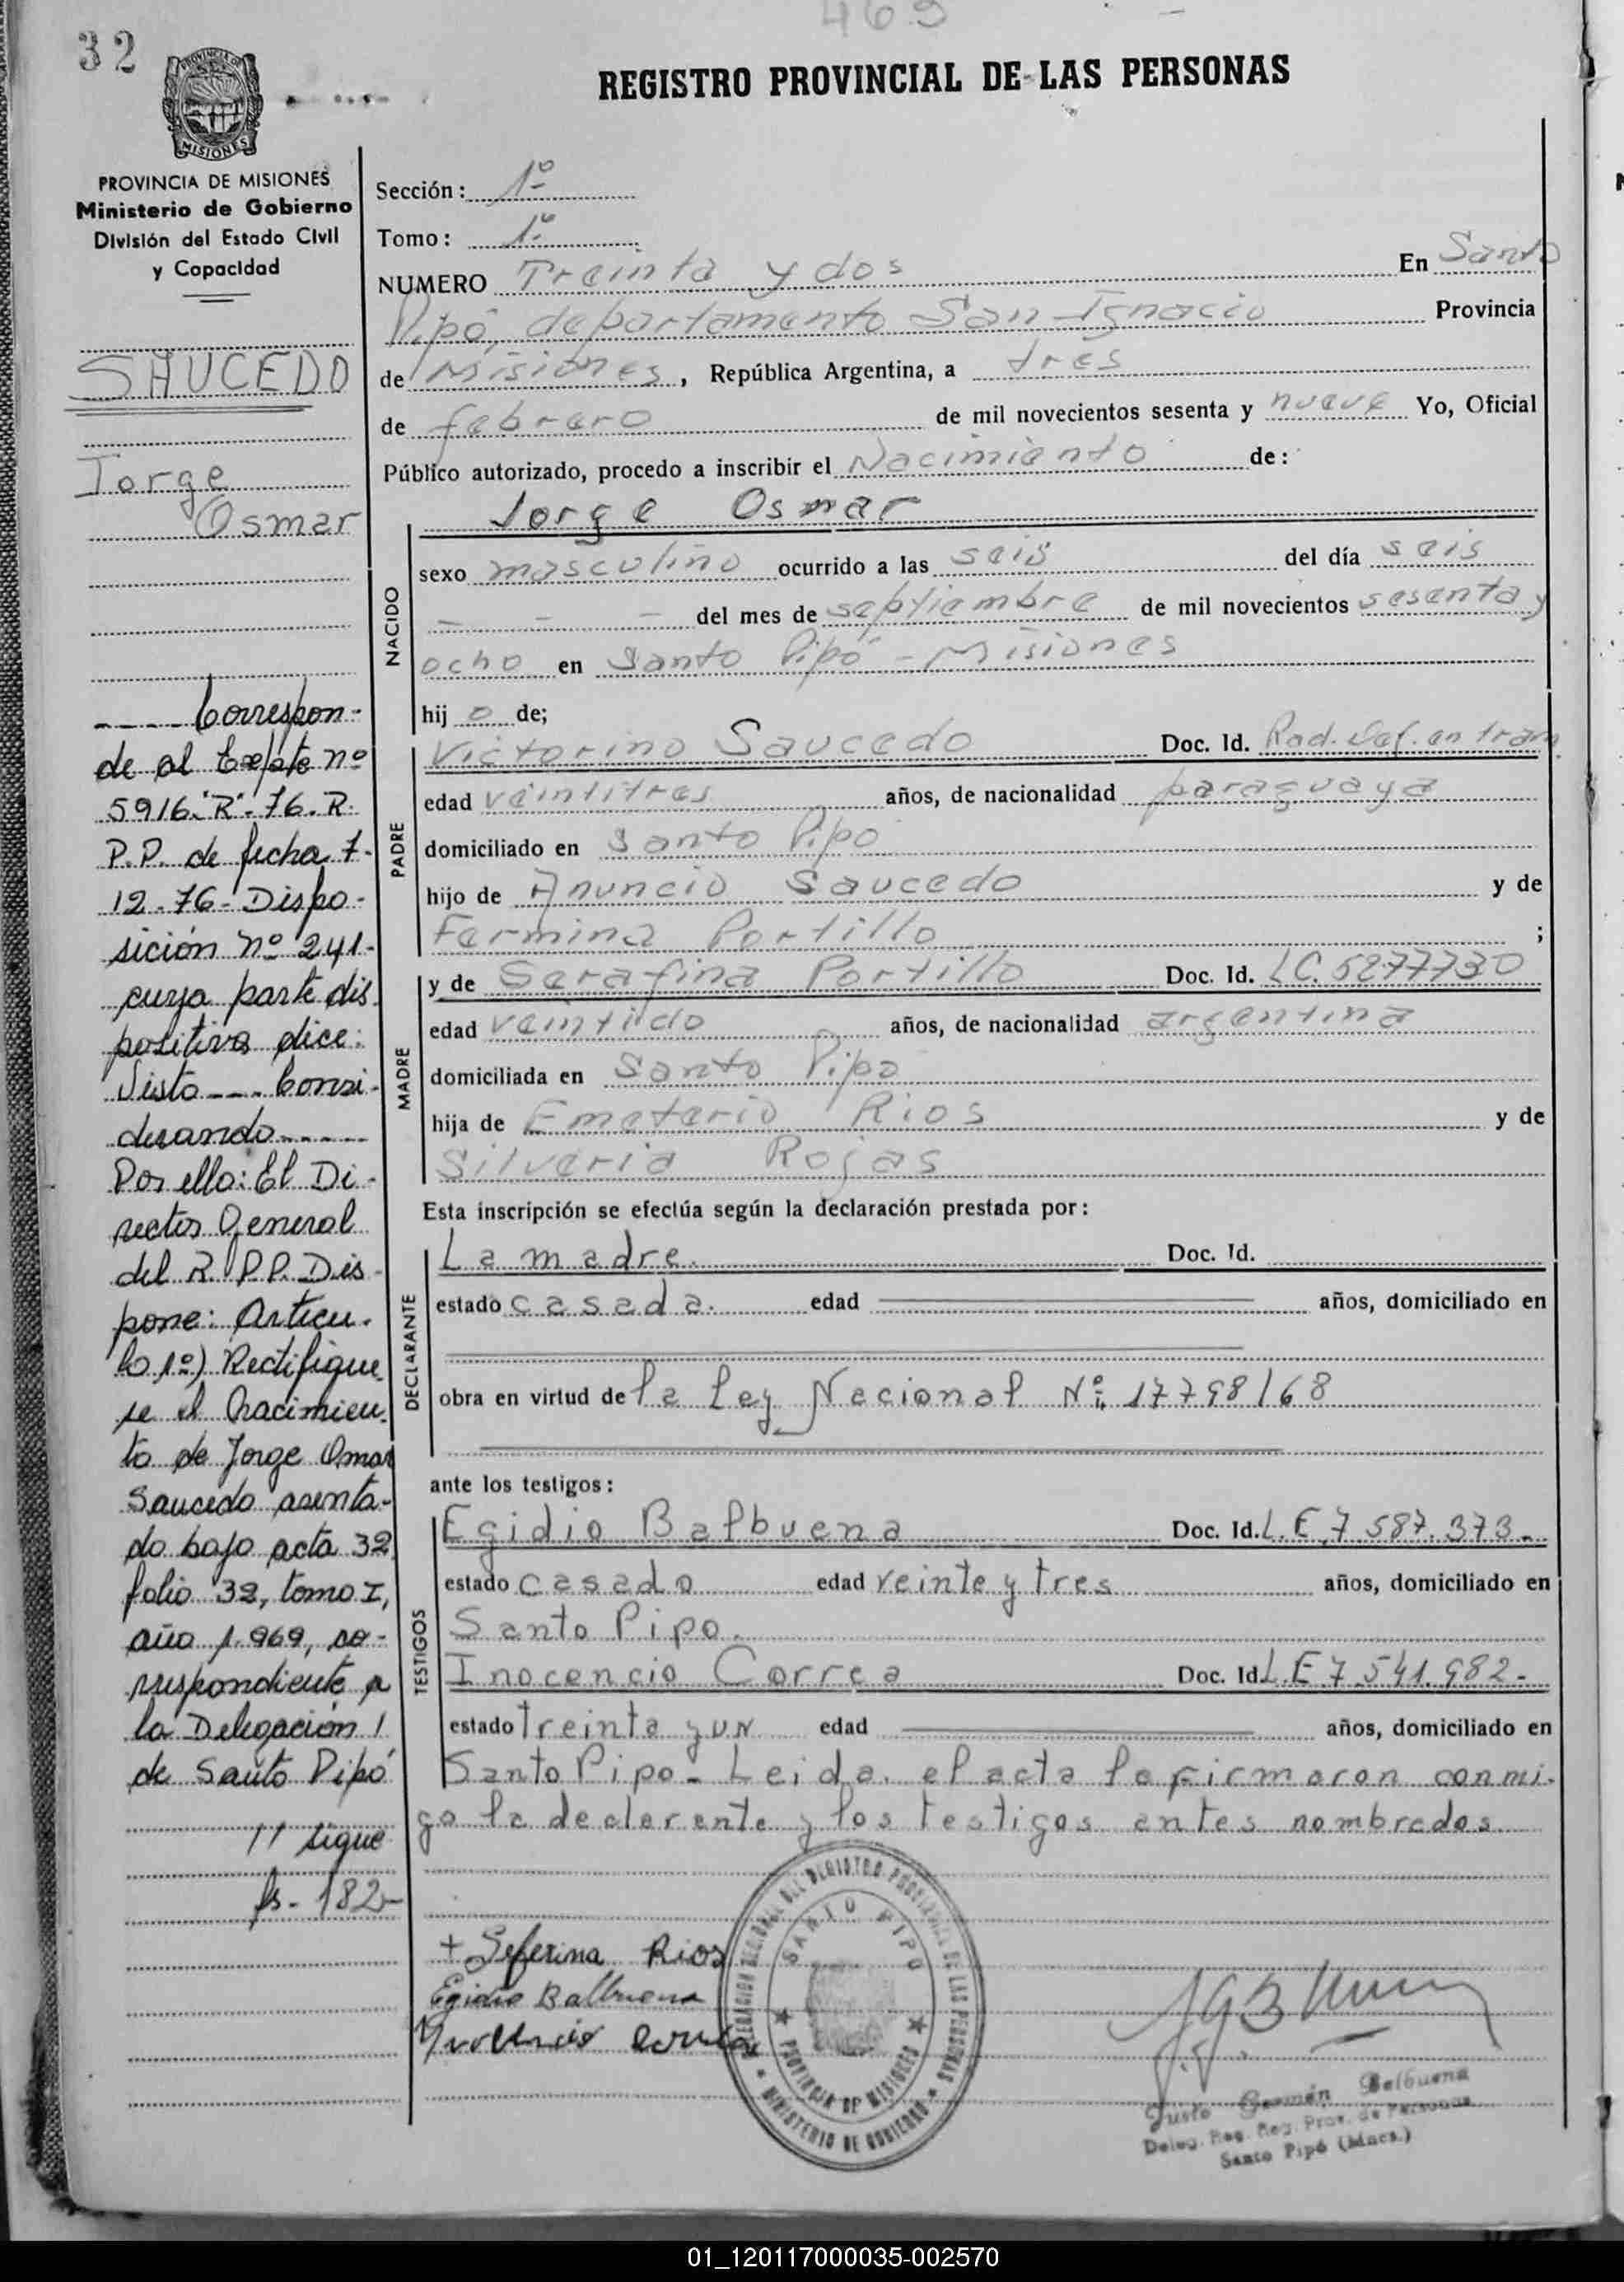 469
32
REGISTRO PROVINCIAL DE LAS PERSONAS
PROVINCIA DE
MISIONES
PROVINCIA DE MISIONES
Ministerio de Gobierno
División del Estado Civil
y Capacidad
SAUCEDO
Jorge
Osmar
---- Correspon-
de al Expte nº
5916."R".76.R.
P.P. de fecha 7-
12-76- Dispo-
sición nº 241-
cuya parte dis
positiva dice:
Visto ---- Consi-
derando -----
Por ello: El Di-
rector General
del R.P.P. Dis-
pone: Artícu-
lo 1º) Rectifique
se el Nacimien-
to de Jorge Omar
Saucedo asenta-
do bajo acta 32
folio 32, tomo I,
año 1.969, co-
rrespondiente a
la Delegación
de Santo Pipó
// sigue
fs- 182-
Sección: 1º
Tomo: 1º
NUMERO Treinta y dos En Santo
Pipó, departamento San Ignacio Provincia
de Misiones, República Argentina, a tres
de febrero de mil novecientos sesenta y nueve Yo, Oficial
Público autorizado, procedo a inscribir el Nacimiento de:
Jorge Osmar
NACIDO
sexo masculino ocurrido a las seis del día seis
- - - del mes de septiembre de mil novecientos sesenta y
ocho en Santo Pipó - Misiones
hij o de;
PADRE
Victorino Saucedo Doc. Id. Rad. Def. en tram.
edad veintitres años, de nacionalidad paraguaya
domiciliado en Santo Pipo
hijo de Anuncio Saucedo y de
Fermina Portillo ;
MADRE
y de Serafina Portillo Doc. Id. LC. 5277730
edad veintido años, de nacionalidad argentina
domiciliada en Santo Pipo
hija de Emeterio Rios y de
Silveria Rojas
Esta inscripción se efectúa según la declaración prestada por:
DECLARANTE
La madre. Doc. Id.
estado casada. edad años, domiciliado en
obra en virtud de la Ley Nacional Nº: 17798/68
ante los testigos:
TESTIGOS
Egidio Balbuena Doc. Id. L.E, 7 587.373-
estado casado edad veinte y tres años, domiciliado en
Santo Pipo.
Inocencio Correa Doc. Id. L.E 7.541.982-
estado treinta y un edad años, domiciliado en
Santo Pipo - Leida el acta la firmaron conmi-
go la declarente y los testigos antes nombrados
+ Seferina Rios
Egidio Balbuena
Inocencio Correa
DELEGACION REGIONAL DEL REGISTRO PROVINCIAL DE LAS PERSONAS
SANTO PIPO
PROVINCIA DE MISIONES
MINISTERIO DE GOBIERNO
Justo Germán Balbuena
Deleg. Reg. Reg. Prov. de Personas
Santo Pipó (Mnes.)
01_120117000035-002570